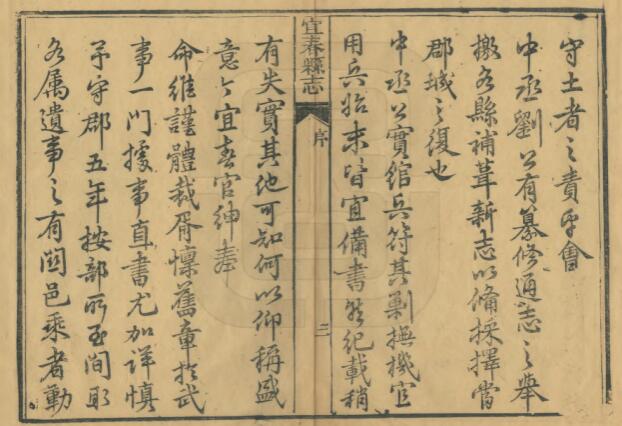 守土者之責乎會
中丞劉公有纂修通志之舉
檄各縣補葺新志以備採擇當
郡城之復也
中丞公實綰兵符其剿撫機宜
用兵始末皆宜備書茲紀載稍
宜春縣志
序
三
有失實其他可知何以仰稱盛
意今宜春官紳奉
命維謹體裁胥懍舊章於武
事一門據事直書尤加詳慎
予守郡五年按部所至間取
各属遺事之有関邑乘者勤